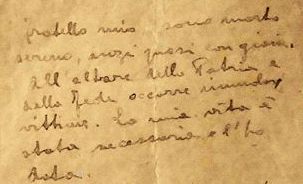 fratello mio sono morto
sereno, anzi quasi con gioia.
All'altare della Patria e
della Fede occorre
vittime. La mia vita è
stata necessaria e l'ho
data.